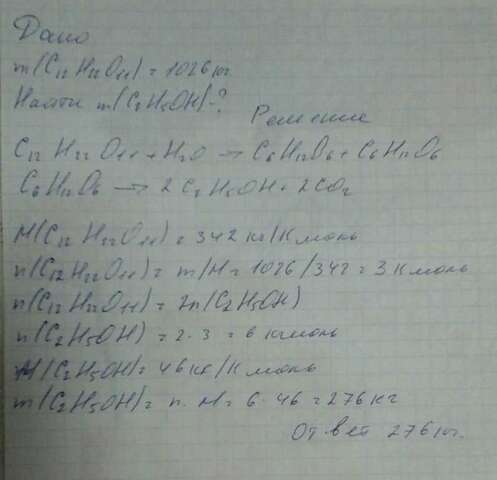 Дано
m(C12H22O11) = 1026 кг
Найти m(C2H5OH)-?
Решение
C12H22O11 + H2O → C6H12O6 + C6H12O6
C6H12O6 → 2C2H5OH + 2CO2
M(C12H22O11) = 342 кг/Кмоль
n(C12H22O11) = m/M = 1026/342 = 3 Кмоль
n(C12H22O11) = 2n(C2H5OH)
n(C2H5OH) = 2·3 = 6 кгмоль
M(C2H5OH) = 46 кг/Кмоль
m(C2H5OH) = n·M = 6·46 = 276 кг
Ответ 276 кг.